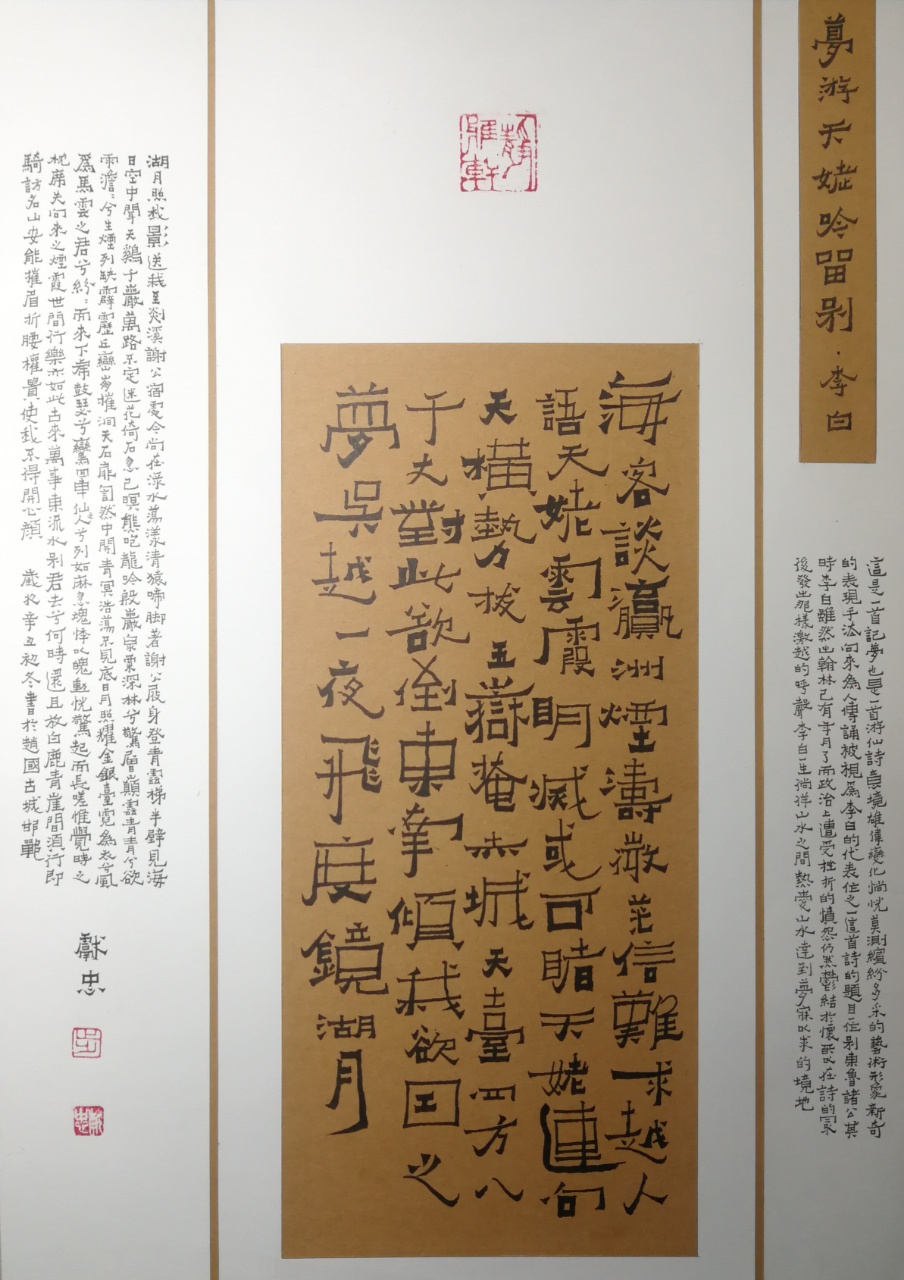 夢游天姥吟留别·李白
這是一首記夢也是一首游仙詩意境雄偉變化惝恍莫測繽紛多采的藝術形象新奇
的表現手法向來為人傳誦被視為李白的代表作之一這首詩的題目一作别東魯諸公其
時李白雖然出翰林已有年月了而政治上遭受挫折的憤怨仍然鬱結於懷所以在詩的最
後發出那樣激越的呼聲李白一生徜徉山水之間熱愛山水達到夢寐以求的境地
海客談瀛洲煙濤微茫信難求越人
語天姥雲霞明滅或可睹天姥連向
天橫勢拔五嶽掩赤城天臺四方八
千丈對此欲倒東南傾我欲因之
夢吳越一夜飛度鏡湖月
湖月照我影送我至剡溪謝公宿處今尚在淥水蕩漾清猿啼脚著謝公屐身登青雲梯半壁見海
日空中聞天鷄千巖萬路不定迷花倚石忽已暝熊咆龍吟殷巖泉栗深林兮驚層巔雲青青兮欲
雨澹：兮生煙列缺霹靂丘巒崩摧洞天石扉訇然中開青冥浩蕩不見底日月照耀金銀臺霓為衣兮風
為馬雲之君兮紛：而來下虎鼓瑟兮鸞回車仙人兮列如麻忽魂悸以魄動怳驚起而長嗟惟覺時之
枕席失向來之煙霞世間行樂亦如此古來萬事東流水别君去兮何時還且放白鹿青崖間須行即
騎訪名山安能摧眉折腰權貴使我不得開心顏 歲次辛丑初冬書於趙國古城邯鄲
獻忠